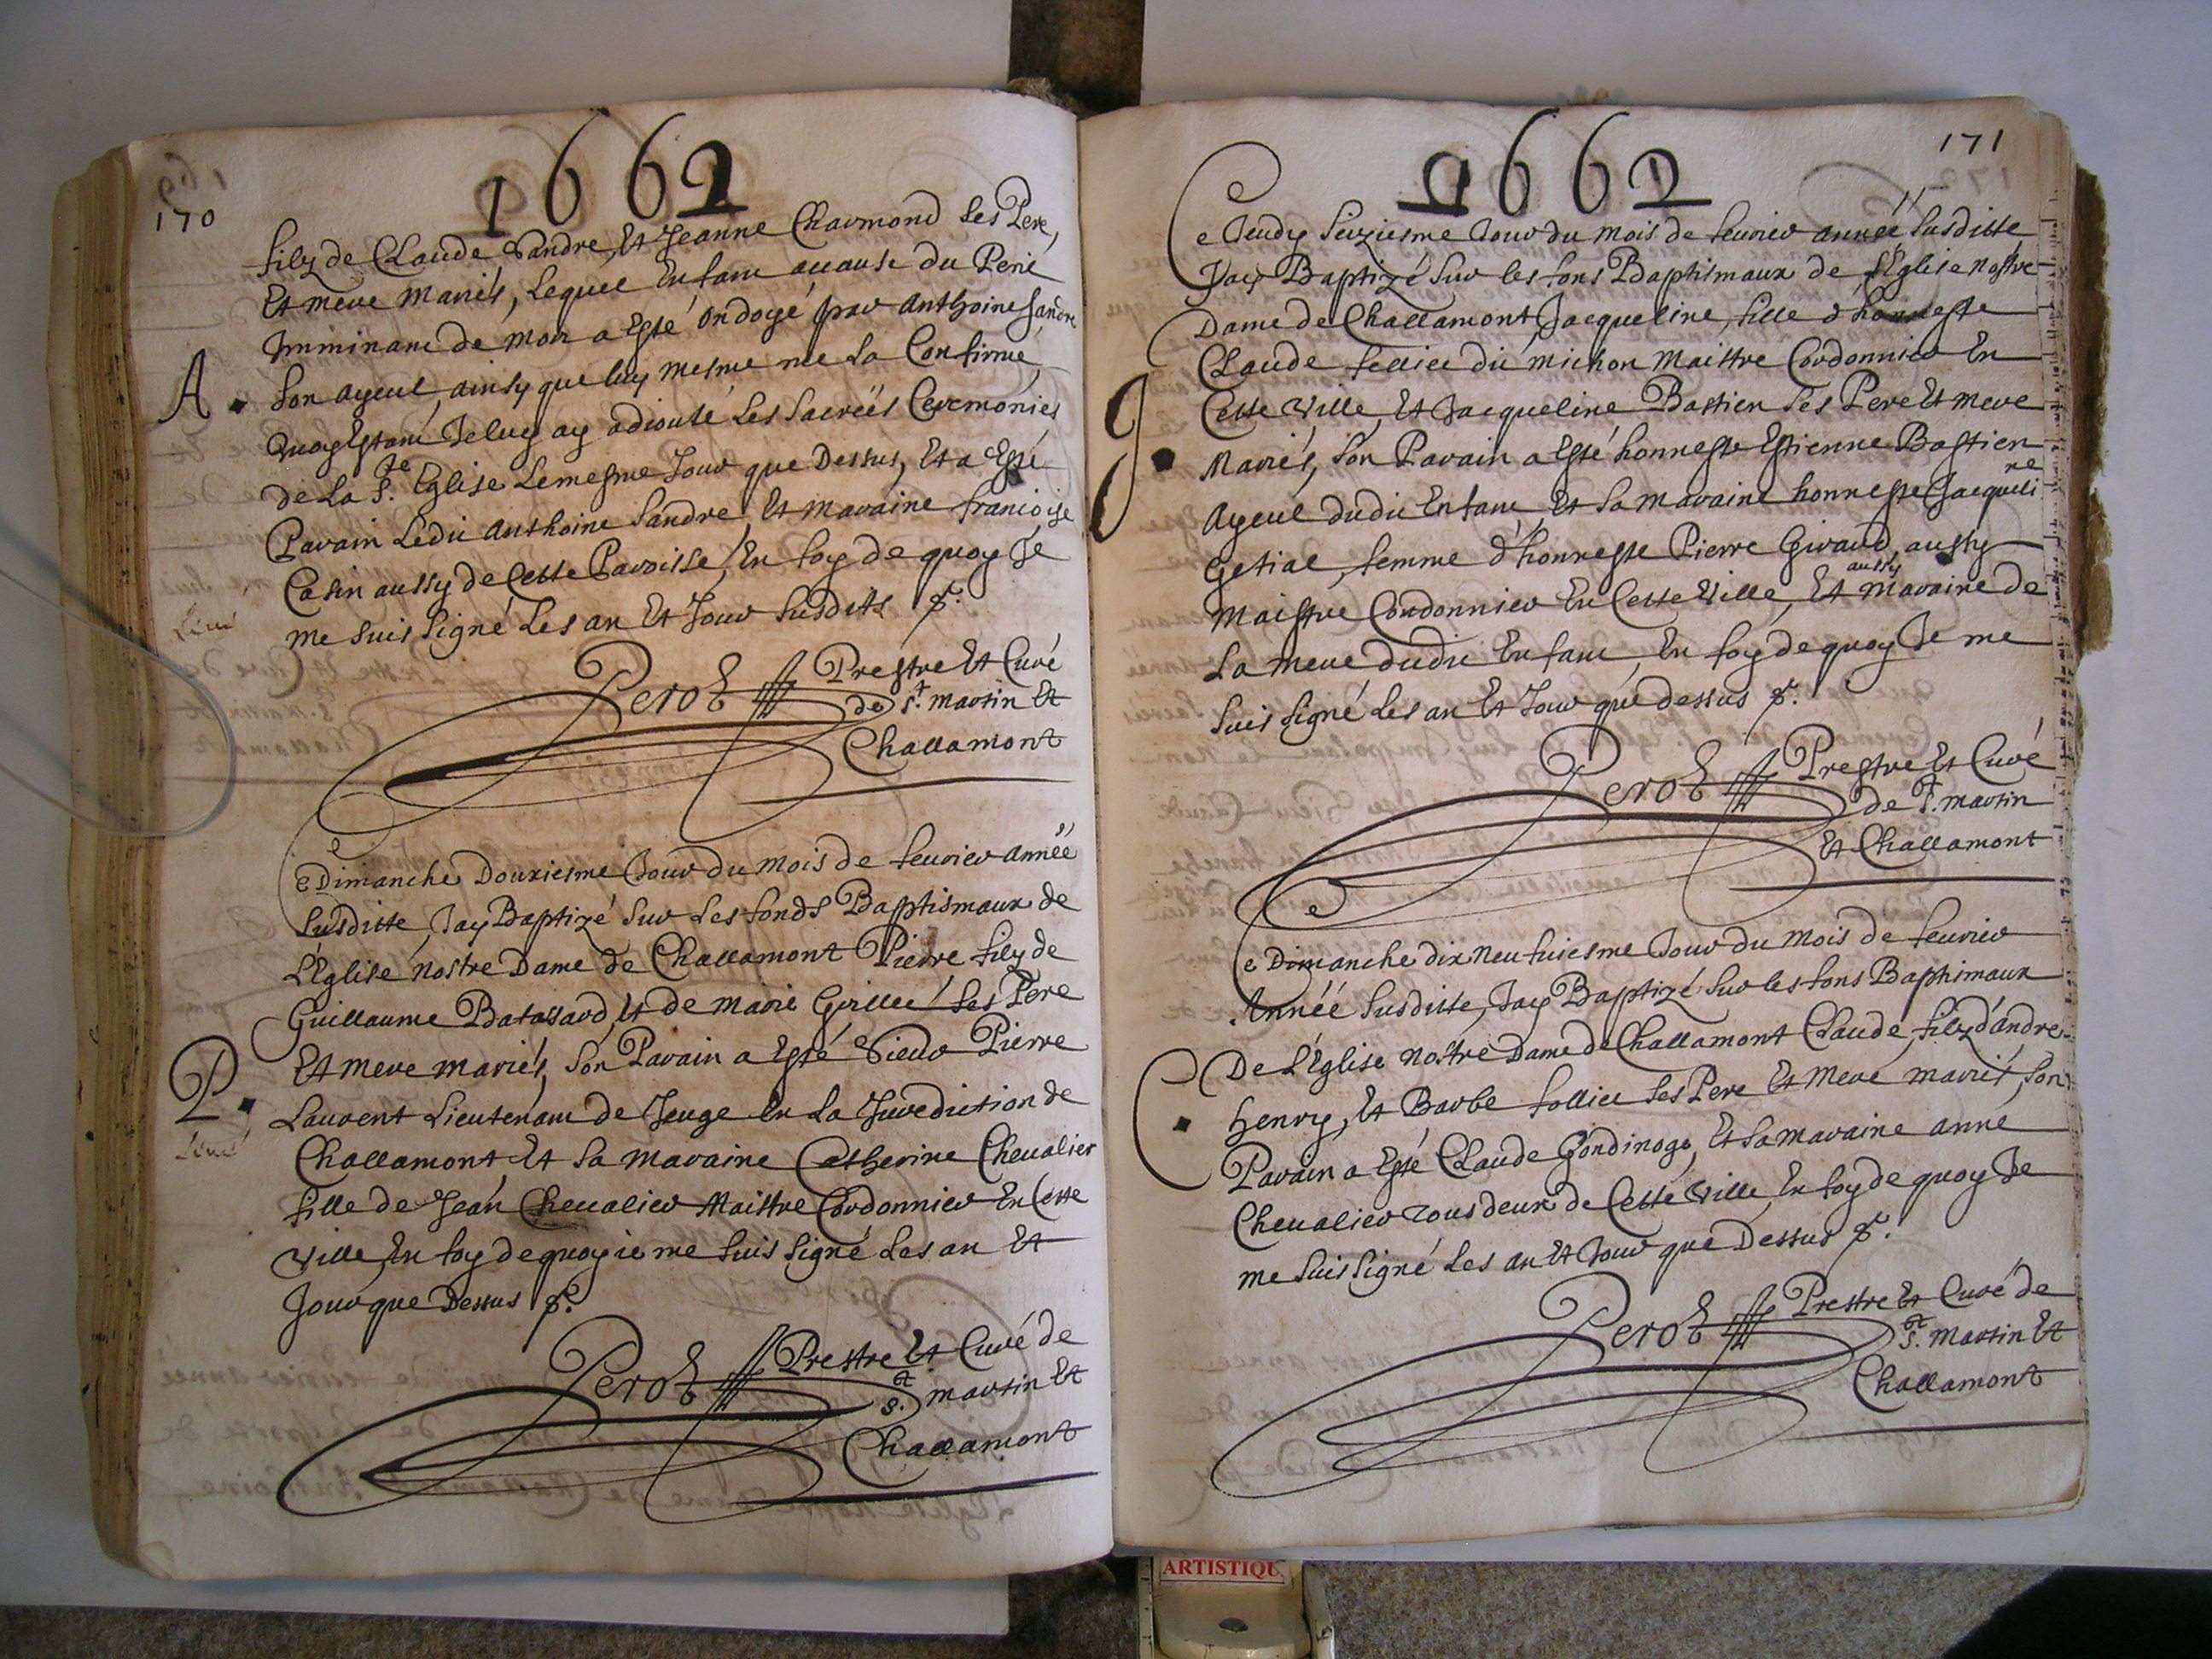 1662
170
filz de Claude Sandre, Et Jeanne Charmond ses Pere,
Et mere mariés, Lequel Enfant acause du Peril
Imminant de mort a Esté Ondoyé par Anthoine Sandre
A
Son ayeul, ainsy que luy mesme me La Confirmé
Quoy Estant Je luy ay adiouté Les Sacréés Ceremonies
de La Ste Eglise Le mesme Jour que Dessus, Et a Esté
Parain Ledit Anthoine Sandre, Et maraine francoise
Casin aussy de Cette Paroisse, En foy de quoy Je
me suis signé Les an Et Jour susdits
Perot Prestre Et Curé
de St. martin Et
Challamont
Ce Dimanche Douziesme Jour du mois de feurier année
susditte, Jay Baptizé sur Les fonds Baptismaux de
L'Eglise nostre Dame de Challamont Pierre filz de
Guillaume Batassard, Et de marie Grillet ses Pere
P
Et mere mariés, son Parain a Esté Sieur Pierre
Laurent Lieutenant de Jeuge En La Jurediction de
Challamont Et sa maraine Catherine Cheualier
fille de Jean Cheualier Maittre Cordonnier En Cette
ville, En foy de quoy ie me suis signé Les an Et
Jour que Dessus
Perot Prestre Et Curé de
St. martin Et
Challamont
1662
171
Ce Jeudy seiziesme Jour du mois de feurier annéé susditte
Jay Baptizé sur les fons Baptismaux de L'Eglise nostre
Dame de Challamont, Jacqueline, fille d'honneste
Claude felliet dit michon maittre Cordonnier En
Cette ville, Et Jacqueline Bastien ses Pere Et mere
J
Mariés, son Parain a Esté honneste Estienne Bastien
Ayeul dudit Enfant, Et sa maraine honneste Jacqueline
Getial, femme d'honneste Pierre Giraud, aussy
Maistre Cordonnier En Cette ville, Et aussy maraine de
La mere dudit Enfant, En foy de quoy Je me
suis signé Les an Et Jour que dessus
Perot Prestre Et Curé
de St. martin
Et Challamont
Ce Dimanche dix neufuiesme Jour du mois de feurier
Annéé susditte, Jay Baptizé sur les fons Baptimaux
De L'Eglise nostre Dame de Challamont Claude, filz d'andre
C
henry, Et Barbe folliet ses Pere Et mere mariés, son
Parain a Esté Claude Gondinoge, Et sa maraine anne
Cheualier tous deux de Cette ville, En foy de quoy Je
me suis signé Les an Et Jour que Dessus
Perot Prestre Et Curé de
St. martin Et
Challamont
ARTISTIQU